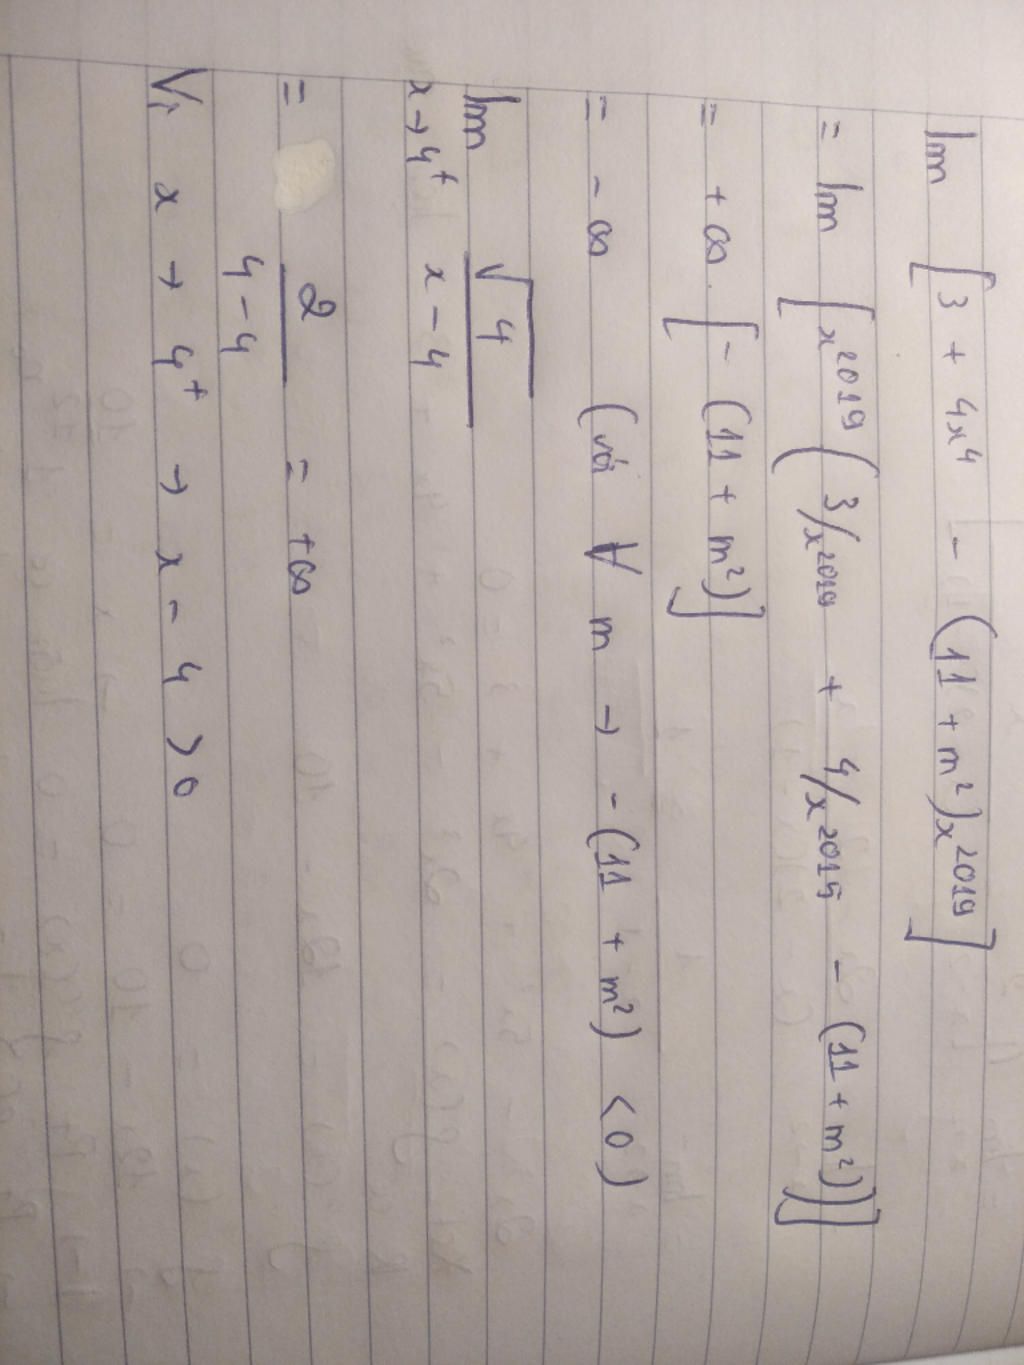 lim [3 + 4x⁴ - (11 + m²)x²⁰¹⁹]
= lim [x²⁰¹⁹ (3/x²⁰¹⁹ + 4/x²⁰¹⁵ - (11 + m²))]
= +∞ . [- (11 + m²)]
= -∞ (với ∀ m → - (11 + m²) < 0)
lim √4
x→4⁺ x - 4
= 2 = +∞
4 - 4
Vì x → 4⁺ → x - 4 > 0